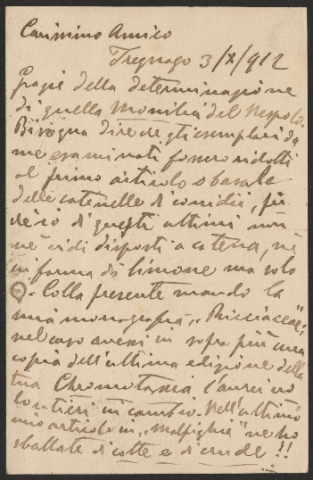 Carissimo Amico
Tregnago 3/X/912
Grazie della determinazione
di quella Monilia del Nespolo.
Bisogna dire che gli esemplari da
me esaminati fossero ridotti
al primo articolo o basale
delle catenelle di conidii, per
di questi ultimi non
ne vidi disposti a catena, nè
in forma di limone ma solo
Colla presente mando la
mia monografia „Ricciaceae";
nel caso avessi in sopra più una
copia dell'ultima edizione della
tua Chromotaxia l'avrei
in cambio. Nell'ultimo
mio articolo in „Malpighia" ne ho
sballate di cotte e di crude!!